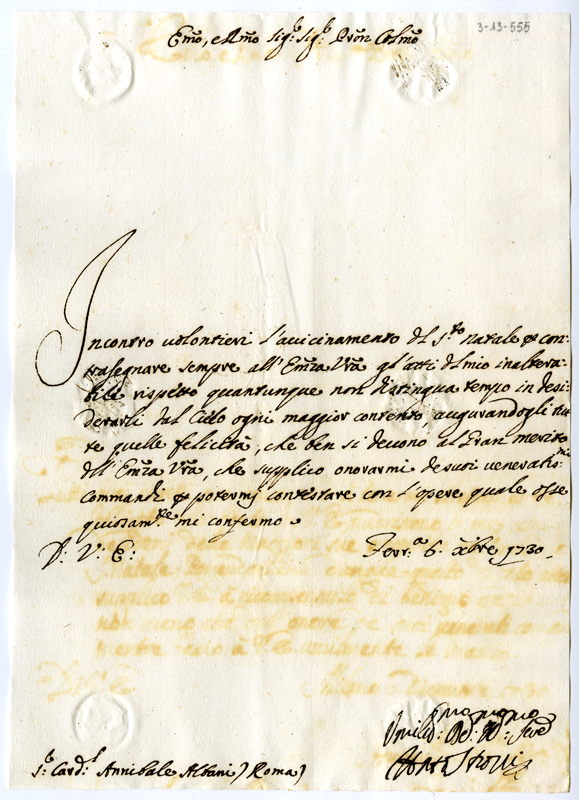 3-13-555
Emo, e Rmo Sig.r Sig.r Pron Colmo
Incontro volontieri l'avvicinamento del S.to natale per con
trasegnare sempre all'Emza Vra gl'atti del mio inaltera
bile rispetto quantunque non distingua tempo in desi
derarli dal Cielo ogni maggior contento, augurandogli tut
te quelle felicità, che ben si devono al gran merito
dell'Emza Vra, che supplico onorarmi de suoi veneratis.mi
Commandi per potermi contestare con l'opere quale osse
quiosam.te mi confermo.
D: V: E:
Ferr.a 6. Xbre 1730.
Umilis:
S.r Card.l Annibale Albani (Roma)